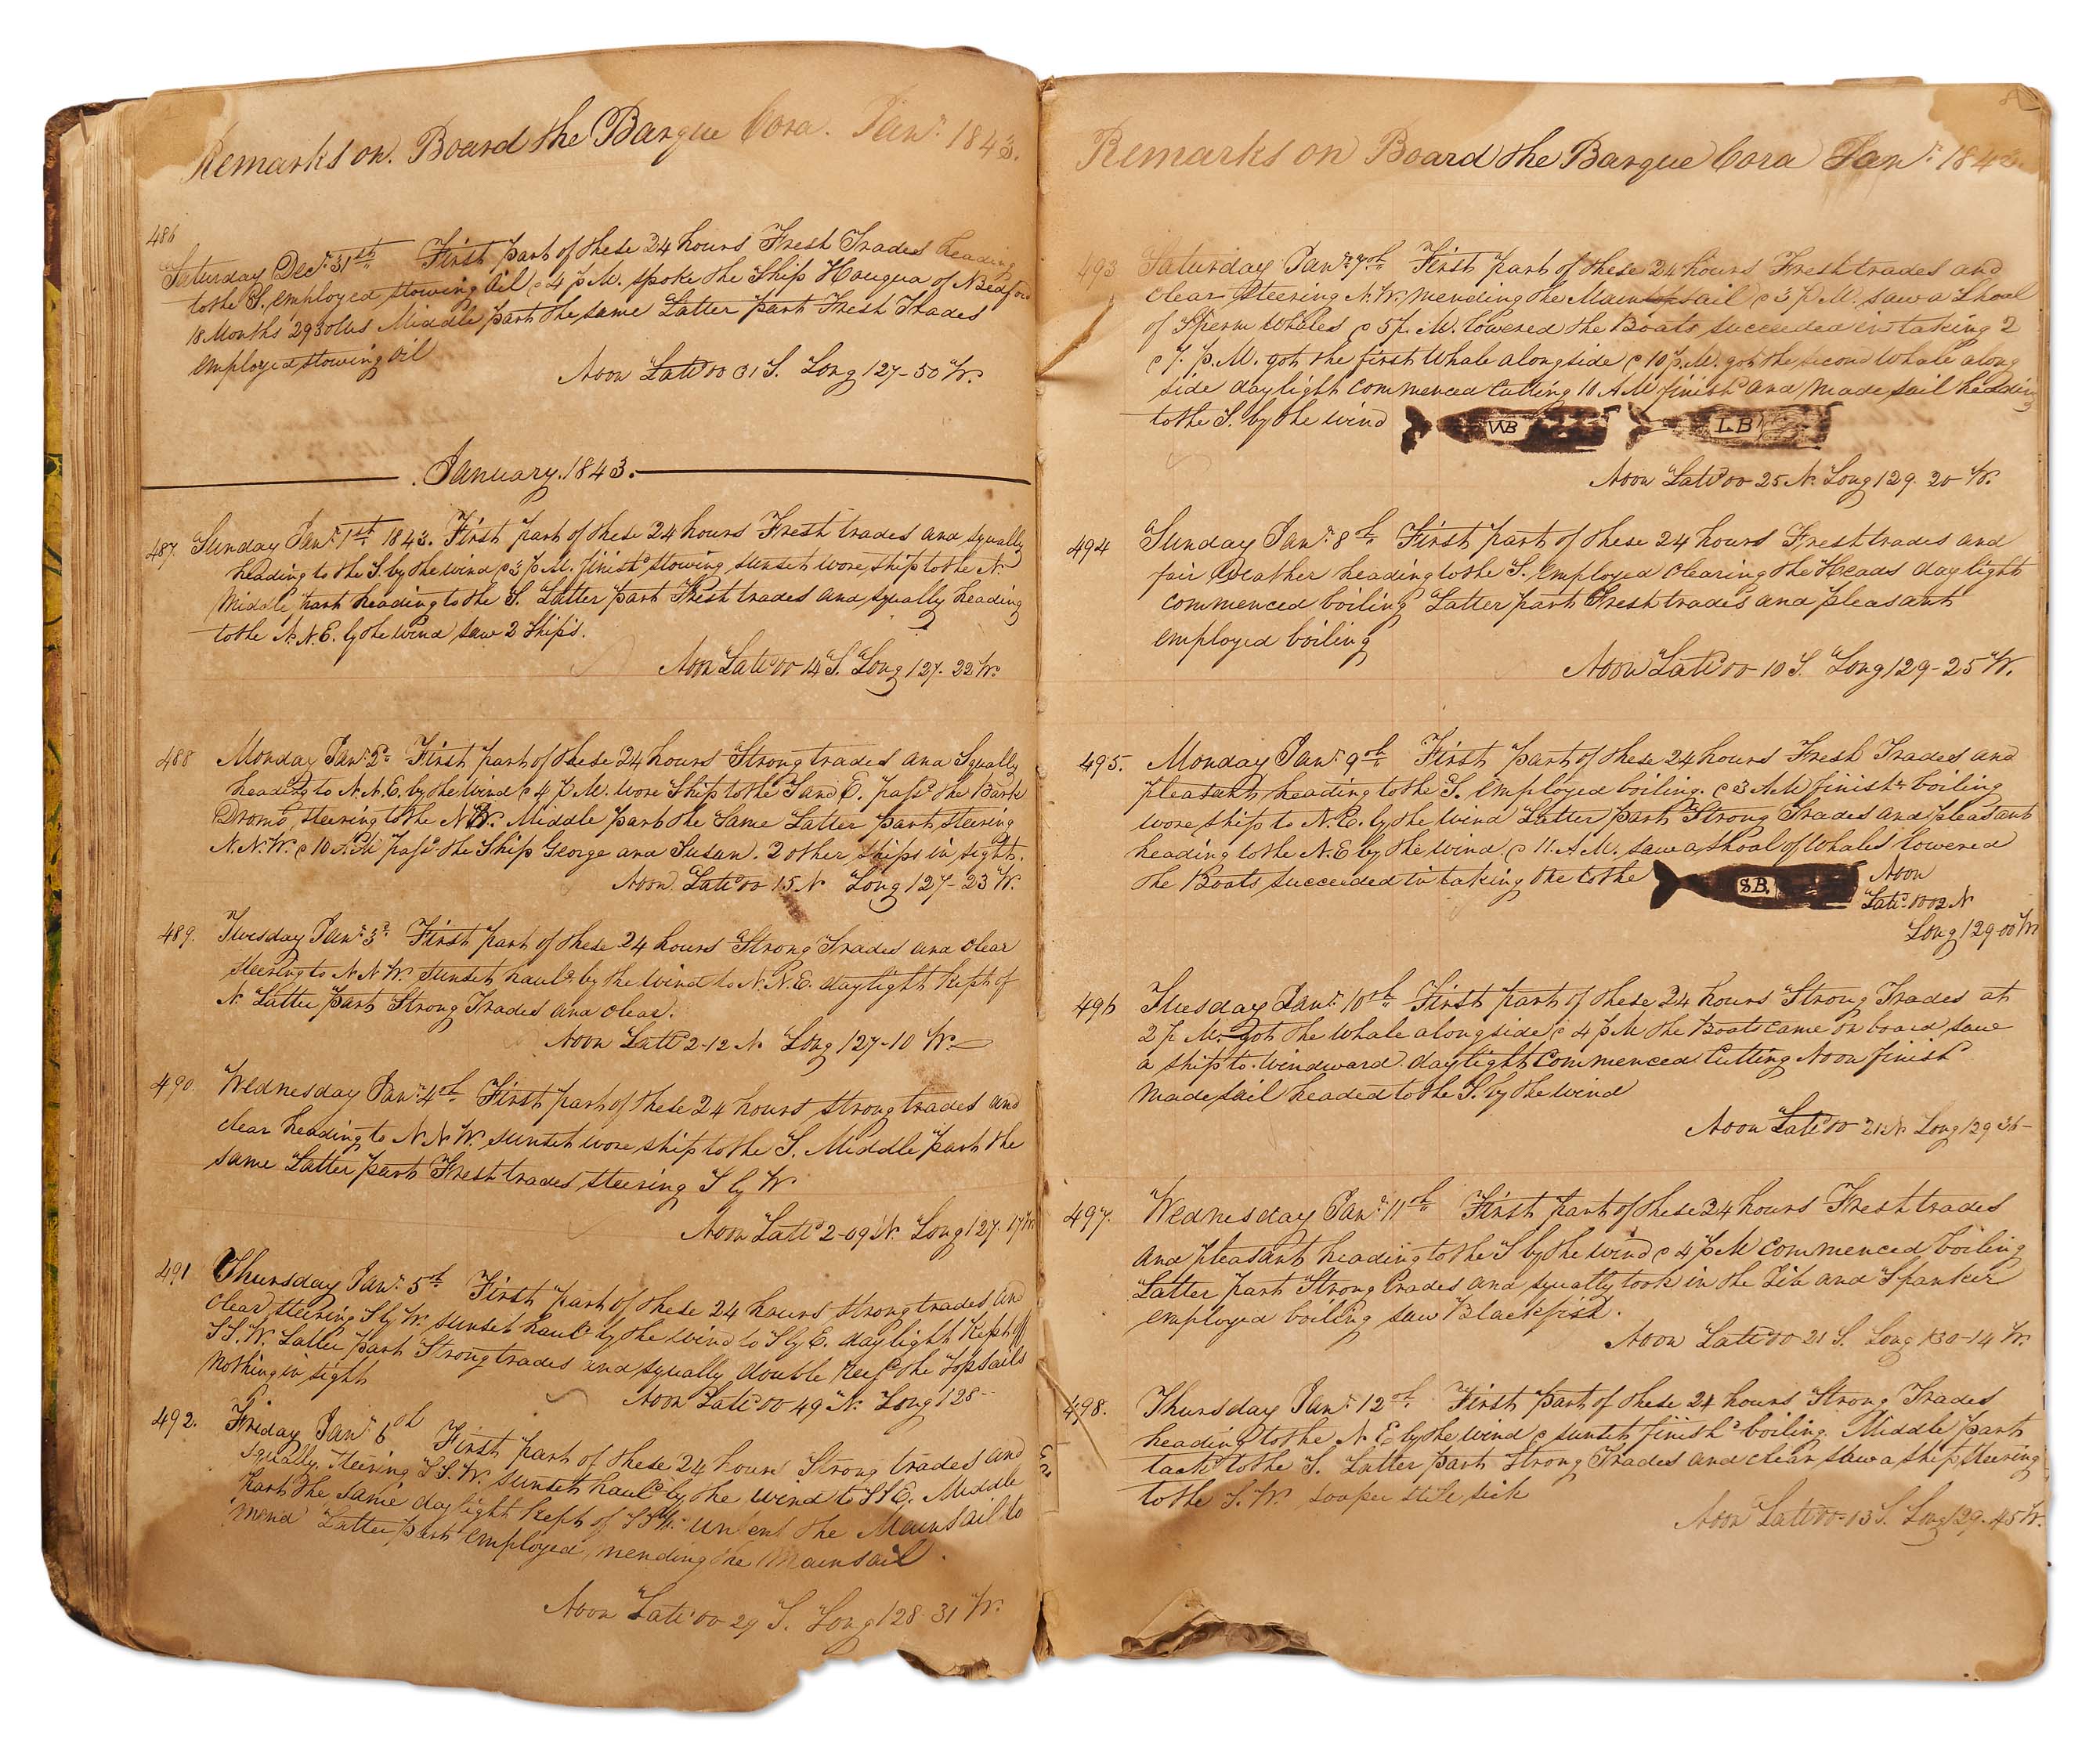 Remarks on Board the Barque Cora. Janr. 1843.
486
Saturday Decr. 31st First part of these 24 hours Fresh Trades heading
to the S. employed stowing Oil @ 4 P.M. spoke the Ship Houqua of N Bedford
18 Months 2930 bls Middle part the same Latter part Fresh Trades
employed stowing oil
Noon Latd 00 31 S. Long 127-50 W.
January. 1843.
487. Sunday Janr 1st 1843. First part of these 24 hours Fresh trades and squally
heading to the S. by the wind @ 3 P.M. finisd stowing sunset wore ship to the N.
Middle part heading to the S. Latter part Fresh trades and squally heading
to the N.N.E. by the wind saw 2 Ships.
Noon Latd 00 14 S. Long 127-22 W.
488 Monday Janr 2d First part of these 24 hours Strong trades and Squally
heading to N.N.E. by the wind @ 4 P.M. wore Ship to the S and E. pass'd the Bark
Dromo, steering to the N.W. Middle part the same Latter part steering
N.N.W. @ 10 A.M. pass'd the Ship George and Susan. 2 other ships in sight.
Noon Latd 00 15 N Long 127-23 W.
489. Tuesday Janr 3d First part of these 24 hours Strong Trades and clear
steering to N N W. sunset hauld by the wind to N.N.E. daylight kept of
N. Latter part Strong Trades and clear.
Noon Latd 2-12 N. Long 127-10 W.
490. Wednesday Janr 4th First part of these 24 hours strong trades and
clear heading to N N W. sunset wore ship to the S. Middle part the
same Latter part Fresh trades steering S by W
Noon Latd 2-09 N. Long 127-17 W
491 Thursday Janr 5th First part of these 24 hours strong trades and
clear steering S by W. sunset hauld by the wind to S by E. daylight kept off
S S.W. Latter part Strong trades and squally double reefd the topsails
Nothing in sight
Noon Latd 00 49 N. Long 128--
492. Friday Janr 6th First part of these 24 hours Strong trades and
squally. steering S S.W. sunset hauld by the wind to S S E. Middle
part the same daylight kept of S S W. unbent the Mainsail to
mend Latter part employed mending the Mainsail.
Noon Latd 00-29 S. Long 128-31 W.
Remarks on Board the Barque Cora Janr. 1843.
493 Saturday Janr 7th First part of these 24 hours Fresh trades and
clear steering N.W. mending the Maintopsail @ 3 P.M. saw a Shoal
of Sperm Whales @ 5 P.M. lowered the Boats succeeded in taking 2
@ 7. P.M. got the first whale alongside @ 10 P.M. got the second whale along
side daylight commenced cutting 10 A.M finishd and made sail heading
to the S. by the wind WB LB
Noon Latd 00-25 N. Long 129-20 W.
494 Sunday Janr 8th First part of these 24 hours Fresh trades and
fair Weather heading to the S. employed clearing the Heads daylight
commenced boiling Latter part Fresh trades and pleasant
employed boiling
Noon Latd 00-10 S. Long 129-25 W.
495. Monday Janr 9th First part of these 24 hours Fresh Trades and
pleasant heading to the S. employed boiling. @ 3 A.M finishd boiling
wore ship to N.E. by the wind Latter part Strong Trades and pleasant
heading to the N.E by the wind @ 11. A.M. saw a shoal of Whales lowered
the Boats succeeded in taking one to the S.B. Noon
Latd 00 02 N
Long 129-00 W
496 Tuesday Janr 10th First part of these 24 hours Strong Trades at
2 P.M. got the whale alongside @ 4 P.M the Boats came on board saw
a ship to windward daylight commenced Cutting Noon finish
made sail headed to the S. by the wind
Noon Latd 00 21 N Long 129 36-
497. Wednesday Janr 11th First part of these 24 hours Fresh trades
and pleasant heading to the S by the wind @ 4 P.M commenced boiling
Latter part Strong trades and squally took in the Jib and Spanker
employed boiling saw Blackfish.
Noon Latd 00-21 S. Long 130-14 W.
498. Thursday Janr 12th. First part of these 24 hours Strong Trades
heading to the N.E by the wind @ sunset finishd boiling. Middle part
tackd to the S. Latter part Strong Trades and clear saw a ship steering
to the S.W. sick
Noon Latd 00-13 S. Long 129-45 W.